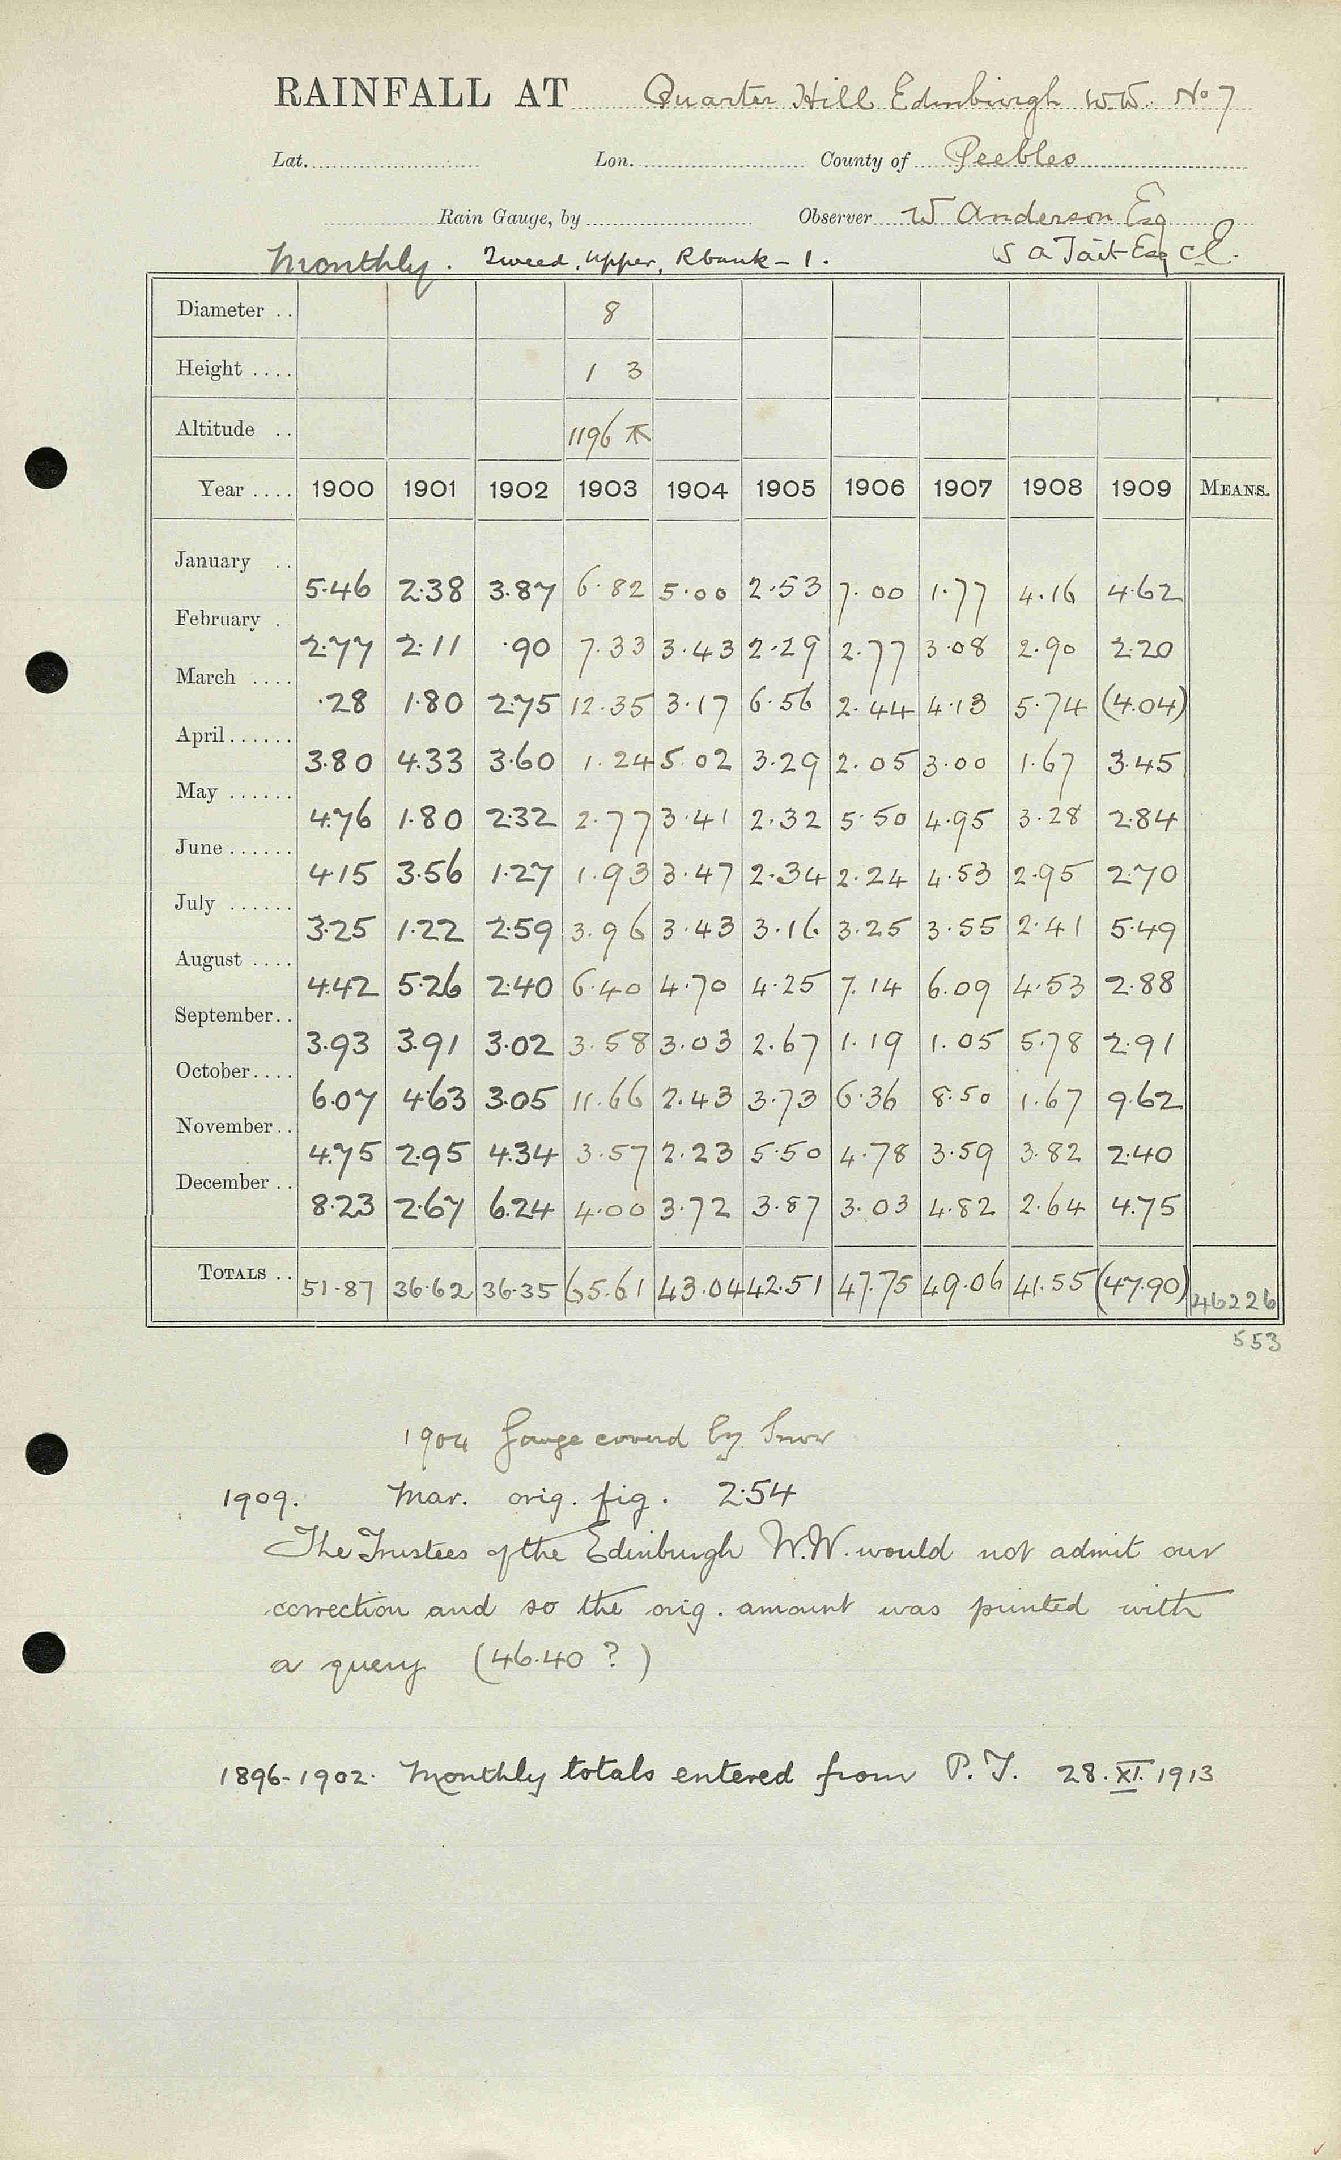 RAINFALL AT Quarter Hill Edinburgh W.W. No 7
Lat. Lon. County of Peebles
Rain Gauge, by Observer W Anderson Esq
Monthly. Tweed, Upper, Rbank - 1. S A Tait Esq CE.
Diameter .. 8
Height .... 1 3
Altitude .. 1196
Year .... 1900 1901 1902 1903 1904 1905 1906 1907 1908 1909 MEANS.
January .. 5.46 2.38 3.87 6.82 5.00 2.53 7.00 1.77 4.16 4.62
February . 2.77 2.11 .90 7.33 3.43 2.29 2.77 3.08 2.90 2.20
March .... .28 1.80 2.75 12.35 3.17 6.56 2.44 4.13 5.74 (4.04)
April...... 3.80 4.33 3.60 1.24 5.02 3.29 2.05 3.00 1.67 3.45
May ...... 4.76 1.80 2.32 2.77 3.41 2.32 5.50 4.95 3.28 2.84
June...... 4.15 3.56 1.27 1.93 3.47 2.34 2.24 4.53 2.95 2.70
July ...... 3.25 1.22 2.59 3.96 3.43 3.16 3.25 3.55 2.41 5.49
August .... 4.42 5.26 2.40 6.40 4.70 4.25 7.14 6.09 4.53 2.88
September.. 3.93 3.91 3.02 3.58 3.03 2.67 1.19 1.05 5.78 2.91
October.... 6.07 4.63 3.05 11.66 2.43 3.73 6.36 8.50 1.67 9.62
November.. 4.75 2.95 4.34 3.57 2.23 5.50 4.78 3.59 3.82 2.40
December .. 8.23 2.67 6.24 4.00 3.72 3.87 3.03 4.82 2.64 4.75
TOTALS .. 51.87 36.62 36.35 65.61 43.04 42.51 47.75 49.06 41.55 (47.90) 46226
553
1904 Gauge covered by Snow
1909. Mar. orig. fig. 2.54
The Trustees of the Edinburgh W.W. would not admit our
correction and so the orig. amount was printed with
a query (46.40 ?)
1896-1902. Monthly totals entered from P.T. 28.XI.1913